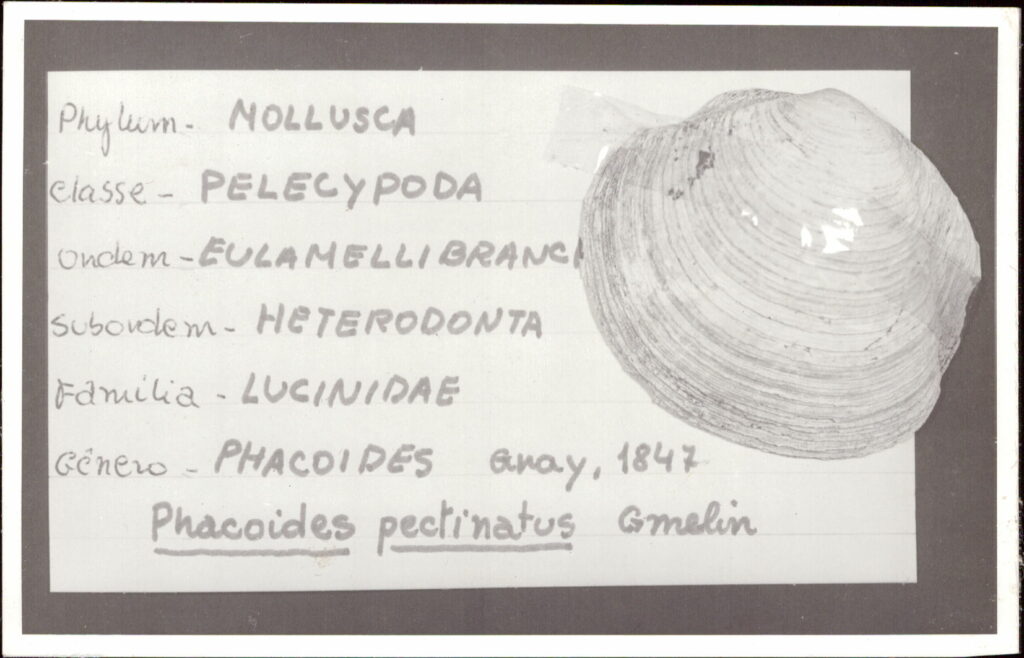 Phylum - MOLLUSCA
Classe - PELECYPODA
Ordem - EULAMELLIBRANC
Subordem - HETERODONTA
Família - LUCINIDAE
Gênero - PHACOIDES Gray, 1847
Phacoides pectinatus Gmelin